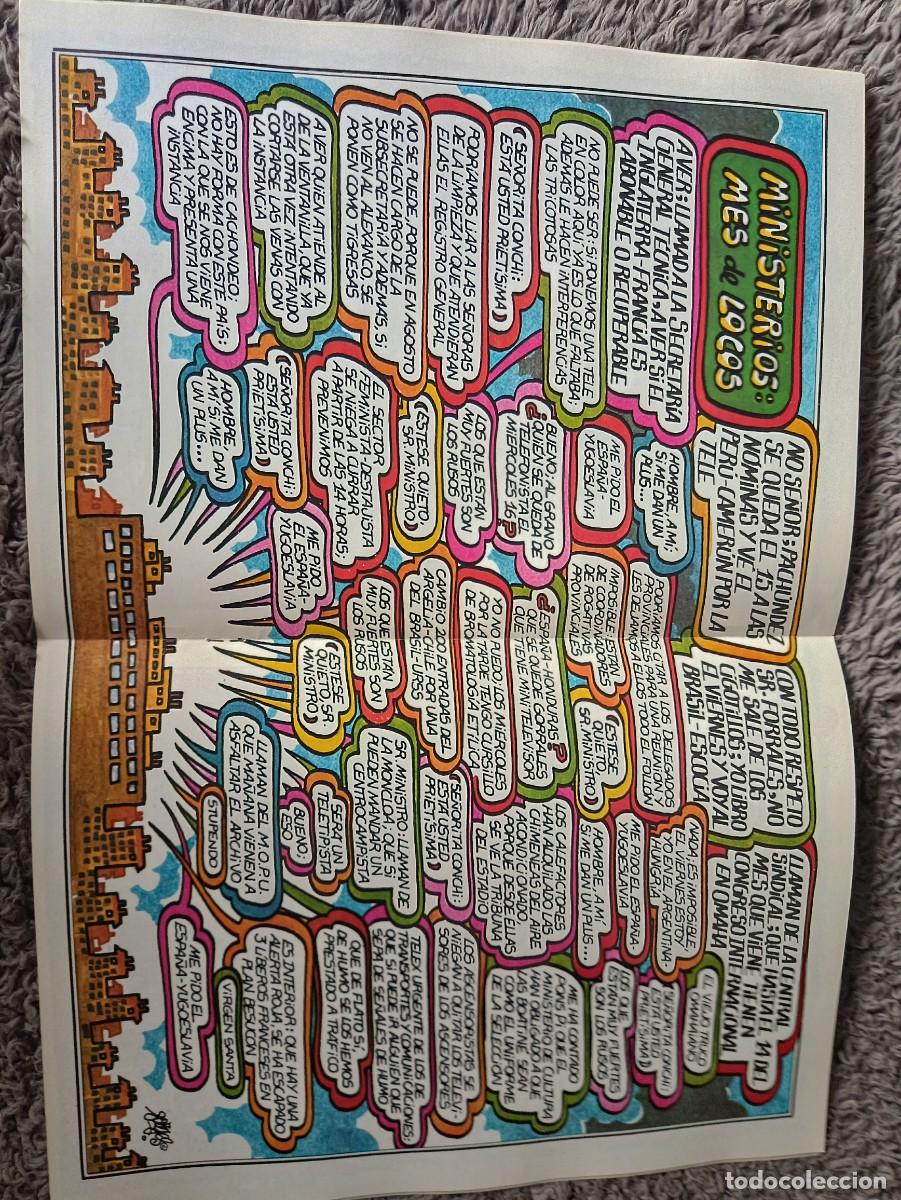 MINISTERIOS:
MES de LOCOS
A VER: LLAMAD A LA SECRETARÍA
GENERAL TÉCNICA, A VER SI EL
INGLATERRA-FRANCIA ES
ABONABLE O RECUPERABLE
NO PUEDE SER: SI PONEMOS UNA TELE
EN COLOR AQUÍ YA ES LO QUE FALTABA;
ADEMÁS LE HACEN INTERFERENCIAS
LAS TRICOTOSAS
SEÑORITA CONCHI:
ESTÁ USTED
PRIETÍSIMA
PODRÍAMOS LIAR A LAS SEÑORAS
DE LA LIMPIEZA Y QUE ATENDIERAN
ELLAS EL REGISTRO GENERAL
NO SE PUEDE, PORQUE EN AGOSTO
SE HACEN CARGO DE LA
SUBSECRETARÍA Y ADEMÁS, SI
NO VEN AL ALEXANCO, SE
PONEN COMO TIGRESAS
A VER QUIEN ATIENDE AL
DE LA VENTANILLA, QUE YA
ESTÁ OTRA VEZ INTENTANDO
CORTARSE LAS VENAS CON
LA INSTANCIA
ESTO ES DE CACHONDEO;
NO HAY FORMA CON ESTE PAÍS:
CON LA QUE SE NOS VIENE
ENCIMA, Y PRESENTA UNA
¡INSTANCIA
NO SEÑOR; PACHÚNDEZ
SE QUEDA EL 15 A LAS
NÓMINAS Y VE EL
PERÚ-CAMERÚN POR LA
TELE
HOMBRE, A MÍ;
SI ME DAN UN
PLUS...
ME PIDO EL
ESPAÑA-
YUGOESLAVIA
BUENO, AL GRANO:
¿QUIÉN SE QUEDA DE
TELEFONISTA EL
MIÉRCOLES 16?
LOS QUE ESTÁN
MUY FUERTES SON
LOS RUSOS
ESTESE QUIETO
SR. MINISTRO
EL SECTOR
FEMINISTA-DESTAJISTA
SE NIEGA A CURRAR
A PARTIR DE LAS 14 HORAS;
PREVENIMOS
SEÑORITA CONCHI:
ESTÁ USTED
PRIETÍSIMA
HOMBRE,
A MÍ SI ME DAN
UN PLUS...
CON TODO RESPETO
SR. FORRALES, NO
ME SALE DE LOS
CIGOTILLOS; YO LIBRO
EL VIERNES Y VOY AL
BRASIL-ESCOCIA
PODRÍAMOS CITAR A LOS DELEGADOS
PROVINCIALES PARA UNA REUNIÓN Y
LES DEJAMOS A ELLOS TODO EL FOLLÓN
IMPOSIBLE; ESTÁN
DE COORDINADORES
DE PRORRATIVAS
PROVINCIALES
ESTESE
QUIETO
SR. MINISTRO
¿ESPAÑA-HONDURAS?
QUE SE QUEDE GORRALES
QUE TIENE MINITELEVISOR
YO NO PUEDO, LOS MIÉRCOLES
POR LA TARDE TENGO CURSO
DE BROMATOLOGÍA ET LUNCH
CAMBIO 200 ENTRADAS DEL
ARGELIA-CHILE POR UNA
DEL BRASIL-URSS
LOS QUE ESTÁN
MUY FUERTES SON
LOS RUSOS
ME PIDO
EL ESPAÑA-
YUGOESLAVIA
ESTESE
QUIETO, SR.
MINISTRO
LLAMAN DE LA CENTRAL
SINDICAL; QUE HASTA EL 11 DEL
MES QUE VIENE TIENEN
CONGRESO INTERNACIONAL
EN OMAHA
NADA, ES IMPOSIBLE,
EL VIERNES ESTOY
YO EN EL ARGENTINA-
HUNGRÍA
ME PIDO EL ESPAÑA-
YUGOESLAVIA
HOMBRE, A MÍ,
SI ME DAN UN PLUS...
LOS CALEFACTORES
HAN ALQUILADO LAS
CHIMENEAS DEL AIRE
ACONDICIONADO,
PORQUE DESDE ELLAS
SE VE LA TRIBUNA
DEL ESTADIO
SEÑORITA CONCHI:
ESTÁ USTED
PRIETÍSIMA
SR. MINISTRO: LLAMAN DE
LA MONCLOA; QUE SI
PUEDEN MANDAR UN
CENTROCAMPISTA
SERÁ UN
TELETIPISTA
BUENO
ESO
LLAMAN DEL M.O.P.U.
QUE MAÑANA VIENEN A
ASFALTAR EL ARCHIVO
STUPENDO
EL VIEJO TRUCO
OMAHAÑERO
SEÑORITA CONCHI
ESTÁ USTED
PRIETÍSIMA
LOS QUE
ESTÁN MUY FUERTES
SON LOS RUSOS
ME HA CONTADO
UNO DE EL
MINISTERIO DE CULTURA
HAN OBLIGADO A QUE
LAS BOATINÉ SEAN
COMO EL UNIFORME
DE LA SELECCIÓN
LOS ASCENSORISTAS SE
NIEGAN A QUITAR LOS TELEVI-
SORES DE LOS ASCENSORES
TELEX URGENTE DE LOS DE
TRANSPORTES Y COMUNICACIONES;
QUE SI PUEDE IR ALGUIEN QUE
SEPA DE SEÑALES DE HUMO
QUE DE FLATO SÍ,
DE HUMO SE LOS HEMOS
PRESTADO A TRÁFICO
ES INTERIOR: QUE HAY UNA
ALERTA ROJA: SE HAN ESCAPADO
3 LÍBEROS FRANCESES EN
PLAN BESUCÓN
VIRGEN SANTA
ME PIDO EL
ESPAÑA-YUGOESLAVIA
todocoleccion